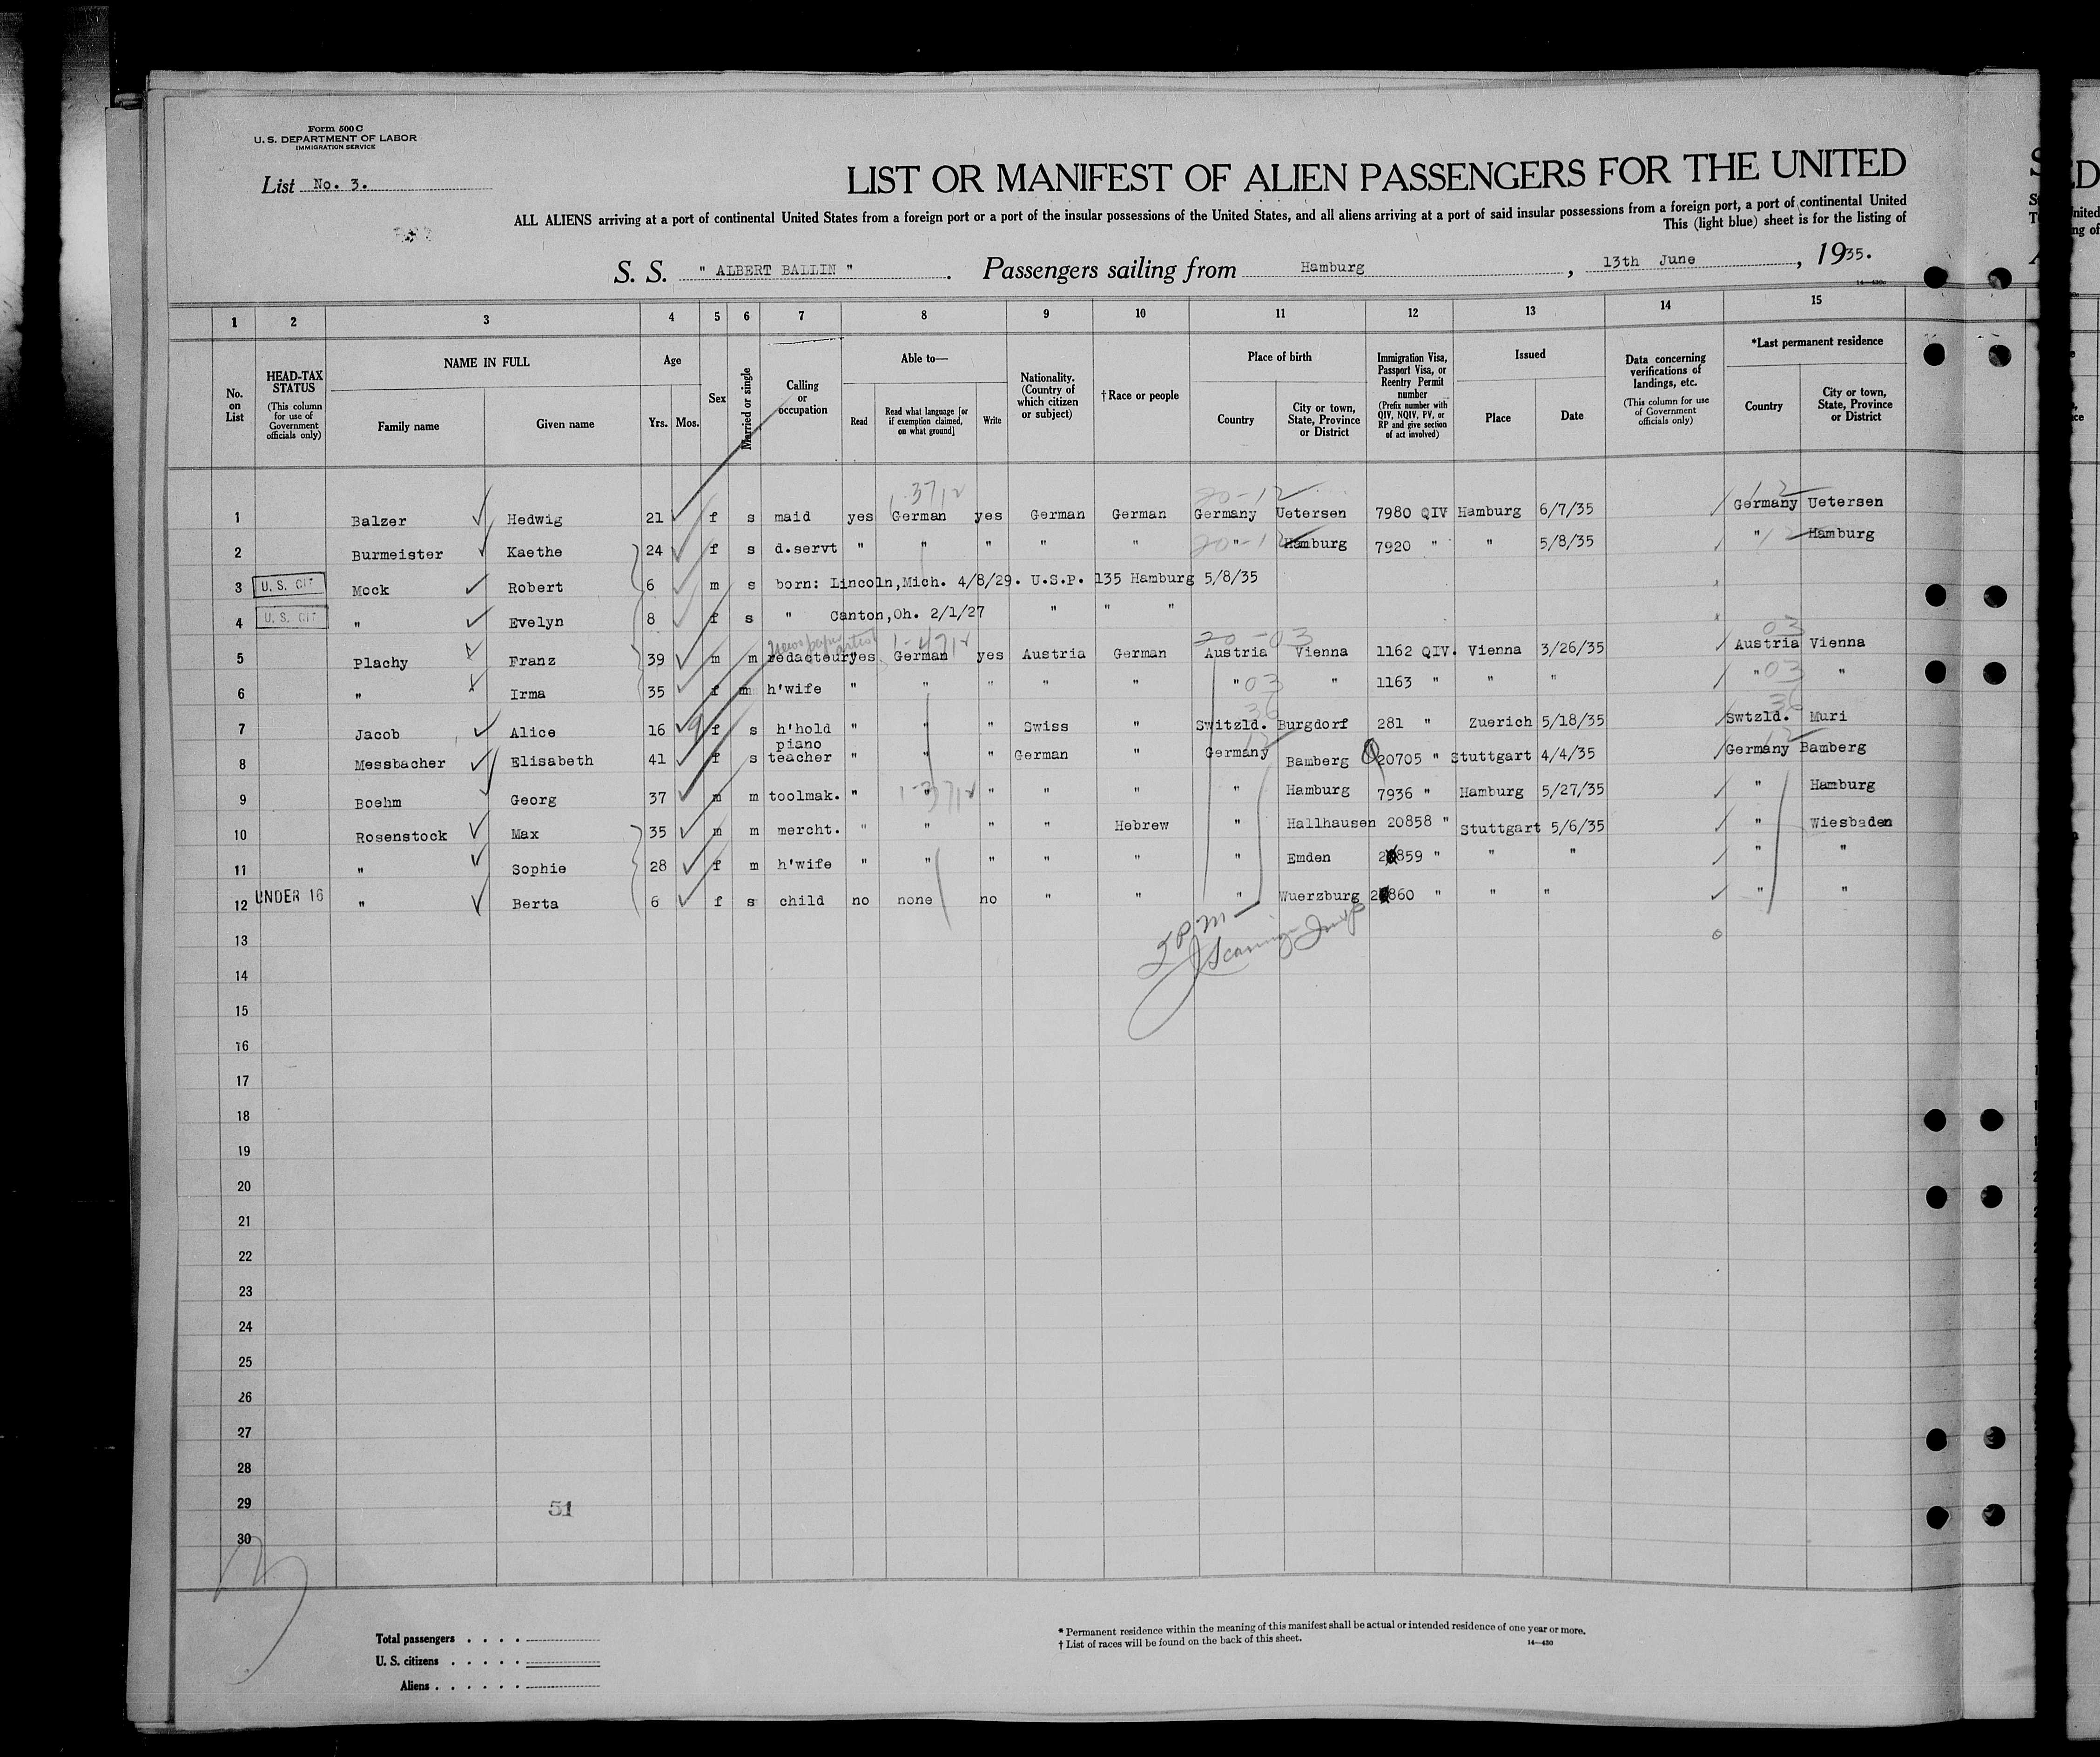 Form 500 C
U. S. DEPARTMENT OF LABOR
IMMIGRATION SERVICE
List No. 3.
LIST OR MANIFEST OF ALIEN PASSENGERS FOR THE UNITED
ALL ALIENS arriving at a port of continental United States from a foreign port or a port of the insular possessions of the United States, and all aliens arriving at a port of said insular possessions from a foreign port, a port of continental United
This (light blue) sheet is for the listing of
S. S. " ALBERT BALLIN " . Passengers sailing from Hamburg , 13th June , 1935.
1 2 3 4 5 6 7 8 9 10 11 12 13 14 15
No. on List
HEAD-TAX STATUS (This column for use of Government officials only)
NAME IN FULL Family name Given name
Age Yrs. Mos.
Sex
Married or single
Calling or occupation
Able to— Read Read what language [or if exemption claimed, on what ground] Write
Nationality. (Country of which citizen or subject)
†Race or people
Place of birth Country City or town, State, Province or District
Immigration Visa, Passport Visa, or Reentry Permit number (Prefix number with QIV, NQIV, PV, or RP and give section of act involved)
Issued Place Date
Data concerning verifications of landings, etc. (This column for use of Government officials only)
*Last permanent residence Country City or town, State, Province or District
1-3712 20-12 12
1 Balzer Hedwig 21 f s maid yes German yes German German Germany Uetersen 7980 QIV Hamburg 6/7/35 Germany Uetersen
2 Burmeister Kaethe 24 f s d.servt " " " " " " Hamburg 7920 " " 5/8/35 " Hamburg
3 U. S. CIT Mock Robert 6 m s born: Lincoln,Mich. 4/8/29. U.S.P. 135 Hamburg 5/8/35
4 U. S. CIT " Evelyn 8 f s " Canton,Oh. 2/1/27 " " "
Newspaper 1-4712 20-03 03
5 Plachy Franz 39 m m redacteur yes German yes Austria German Austria Vienna 1162 QIV. Vienna 3/26/35 Austria Vienna
6 " Irma 35 f m h'wife " " " " " " 03 " 1163 " " " " 03 "
36 36
7 Jacob Alice 16 9 f s h'hold " " " Swiss " Switzld. Burgdorf 281 " Zuerich 5/18/35 Swtzld. Muri
8 Messbacher Elisabeth 41 f s piano teacher " " " German " Germany Bamberg 20705 " Stuttgart 4/4/35 Germany Bamberg
9 Boehm Georg 37 m m toolmak. " " " " " " Hamburg 7936 " Hamburg 5/27/35 " Hamburg
10 Rosenstock Max 35 m m mercht. " " " " Hebrew " Hallhausen 20858 " Stuttgart 5/6/35 " Wiesbaden
11 " Sophie 28 f m h'wife " " " " " " Emden 20859 " " " " "
12 UNDER 16 " Berta 6 f s child no none no " " " Wuerzburg 20860 " " " " "
13
14
15
16
17
18
19
20
21
22
23
24
25
26
27
28
29
30
51
Total passengers
U. S. citizens
Aliens
* Permanent residence within the meaning of this manifest shall be actual or intended residence of one year or more.
† List of races will be found on the back of this sheet.
14—430